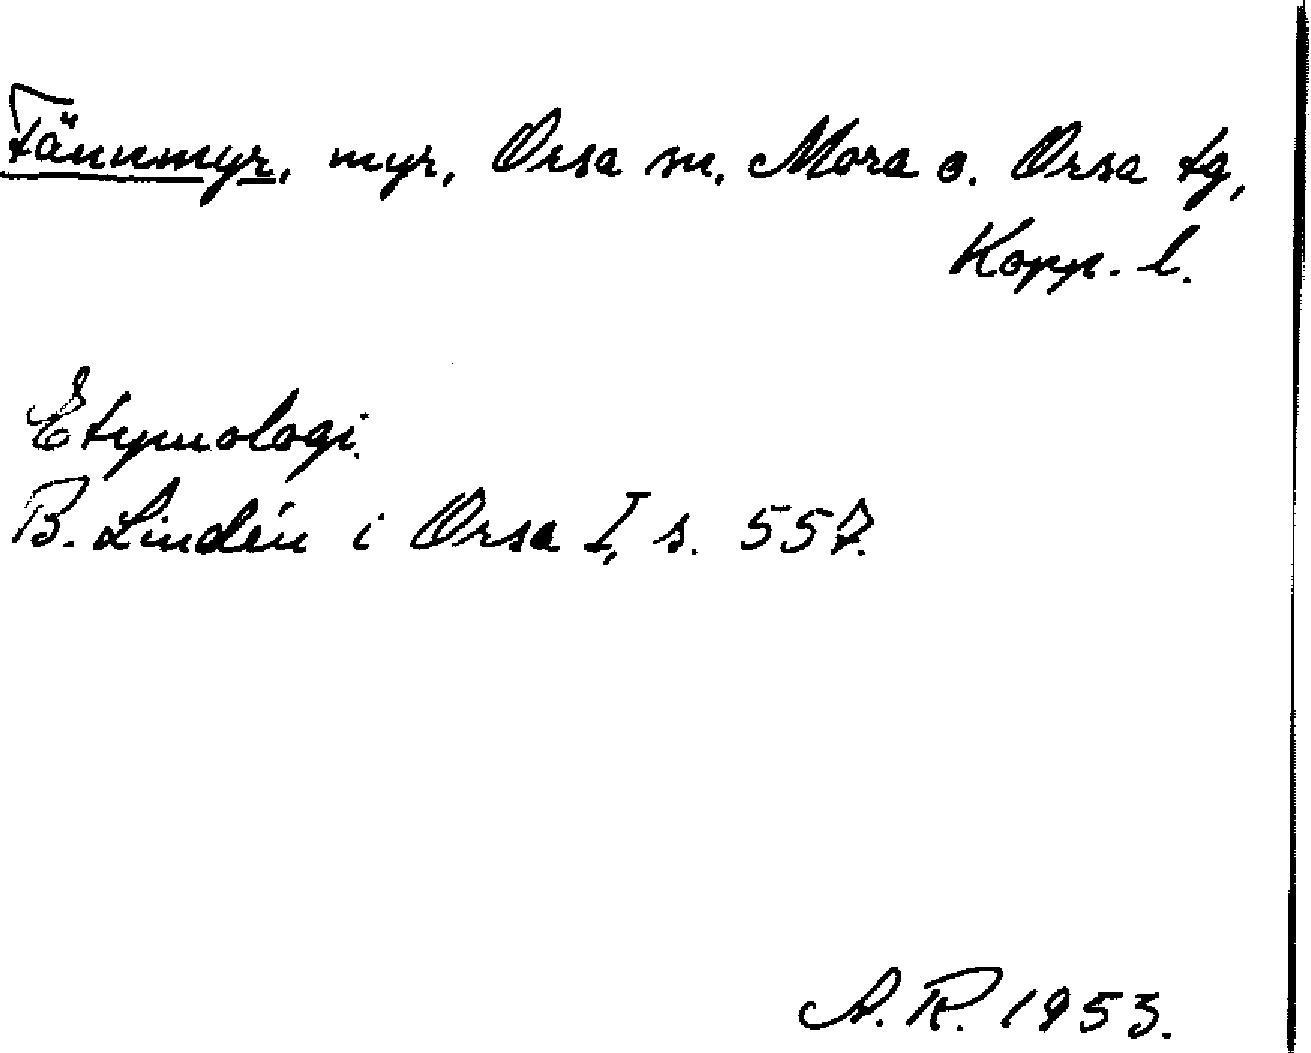 Fännmyr, myr, Orsa sn. Mora o. Orsa tg,
Kopp. l.
Etymologi.
B. Lindén i Orsa I, s. 557.
A. R. 1953.